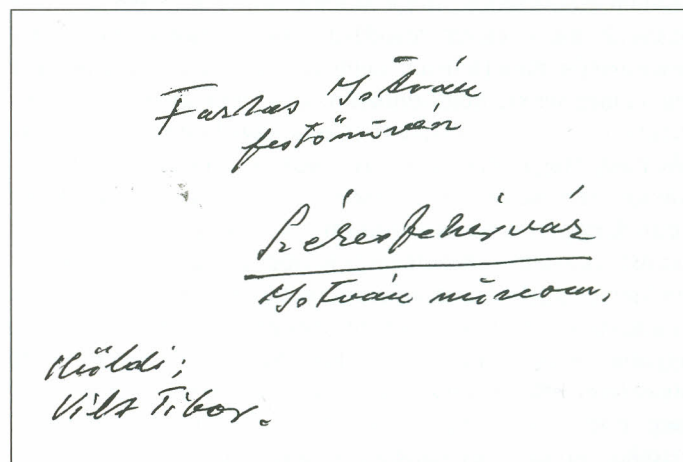 Farkas István
festőművész
Székesfehérvár
István múzeum.
Küldi:
Vilt Tibor.